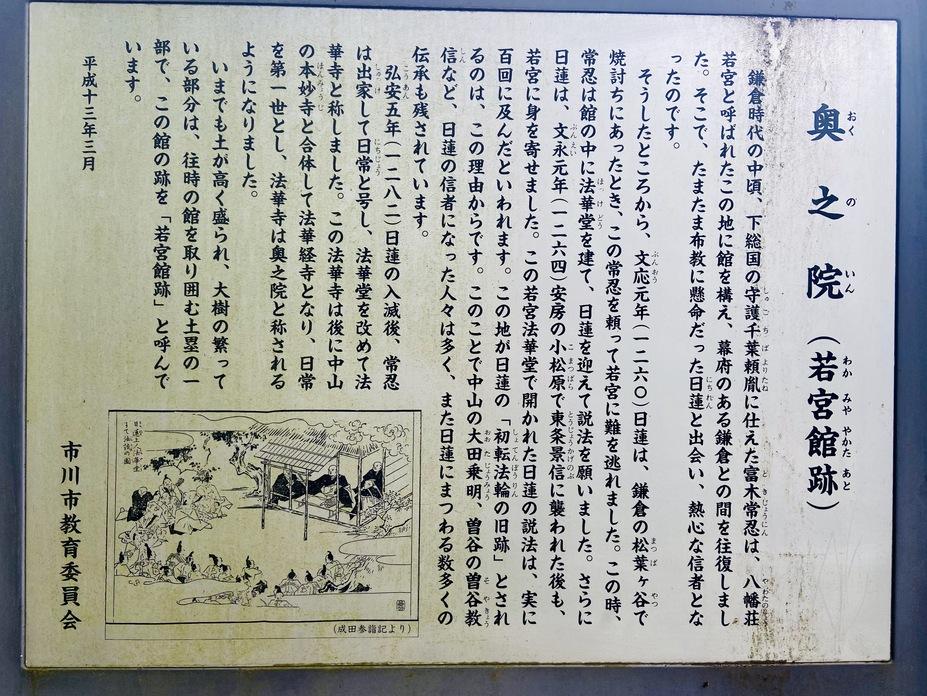 奥之院（若宮館跡）
おくのいん　わかみややかたあと
鎌倉時代の中頃、下総国の守護千葉頼胤に仕えた富木常忍は、八幡荘
若宮と呼ばれたこの地に館を構え、幕府のある鎌倉との間を往復しまし
た。そこで、たまたま布教に懸命だった日蓮と出会い、熱心な信者とな
ったのです。
そうしたところから、文応元年（一二六〇）日蓮は、鎌倉の松葉ヶ谷で
焼討ちにあったとき、この常忍を頼って若宮に難を逃れました。この時、
常忍は館の中に法華堂を建て、日蓮を迎えて説法を願いました。さらに
日蓮は、文永元年（一二六四）安房の小松原で東条景信に襲われた後も、
若宮に身を寄せました。この若宮法華堂で開かれた日蓮の説法は、実に
百回に及んだといわれます。この地が日蓮の「初転法輪の旧跡」とされ
るのは、この理由からです。このことで中山の大田乗明、曽谷の曽谷教
信など、日蓮の信者になった人々は多く、また日蓮にまつわる数多くの
伝承も残されています。
弘安五年（一二八二）日蓮の入滅後、常忍
は出家して日常と号し、法華堂を改めて法
華寺と称しました。この法華寺は後に中山
の本妙寺と合体して法華経寺となり、日常
を第一世とし、法華寺は奥之院と称される
ようになりました。
いまでも土が高く盛られ、大樹の繁って
いる部分は、往時の館を取り囲む土塁の一
部で、この館の跡を「若宮館跡」と呼んで
います。
平成十三年三月
市川市教育委員会
（成田参詣記より）